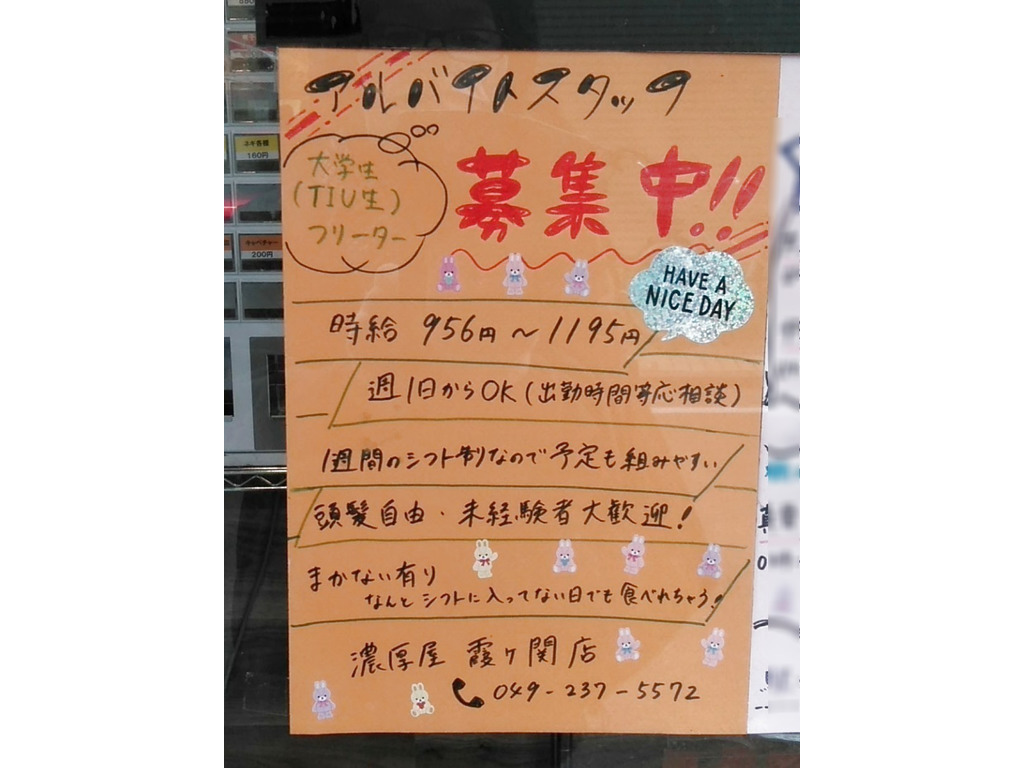 アルバイトスタッフ
募集中!!
大学生
(TIU生)
フリーター
HAVE A
NICE DAY
時給 956円～1195円
週1日からOK(出勤時間等応相談)
1週間のシフト制なので予定も組みやすい
頭髪自由・未経験者大歓迎!
まかない有り
なんとシフトに入ってない日でも食べれちゃう!
濃厚屋 霞ヶ関店
049-237-5572
ネギ各種
160円
キャベチャー
200円